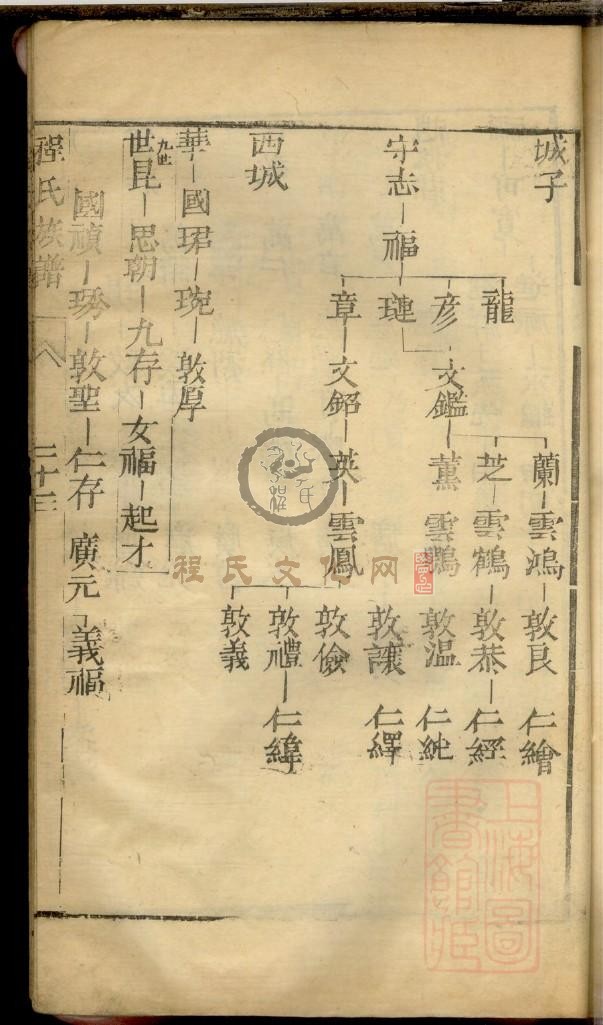 城子
龍
蘭 雲鴻 敦良 仁繪
芝 雲鶴 敦恭 仁經
彦 文鑑 薰 雲鵬 敦温 仁純
守志 福 璉
敦讓 仁繹
章 文紹 英 雲鳳 敦儉
敦禮 仁緯
敦義
西城
華 國珺 琬 敦厚
九世
世昆 思朝 九存 女福 起才
國禎 琇 敦聖 仁存 廣元 義福
程氏族譜 八 二十三
程氏文化网
上海圖書館藏